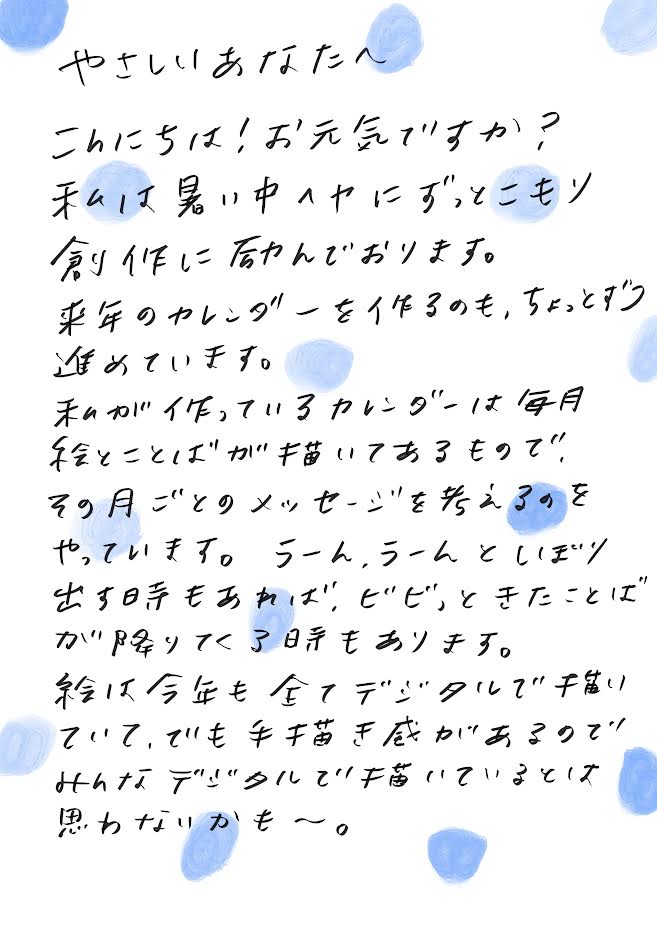 やさしいあなたへ
こんにちは！お元気ですか？
私は暑い中ヘヤにずっとこもり
創作に励んでおります。
来年のカレンダーを作るのも、ちょっとずつ
進めています。
私が作っているカレンダーは毎月
絵とことばが描いてあるもので、
その月ごとのメッセージを考えるのを
やっています。 うーん、うーんとしぼり
出す時もあれば、ビビっときたことば
が降りてくる時もあります。
絵は今年も全てデジタルで描い
ていて、でも手描き感があるので
みんなデジタルで描いているとは
思わないかも〜。